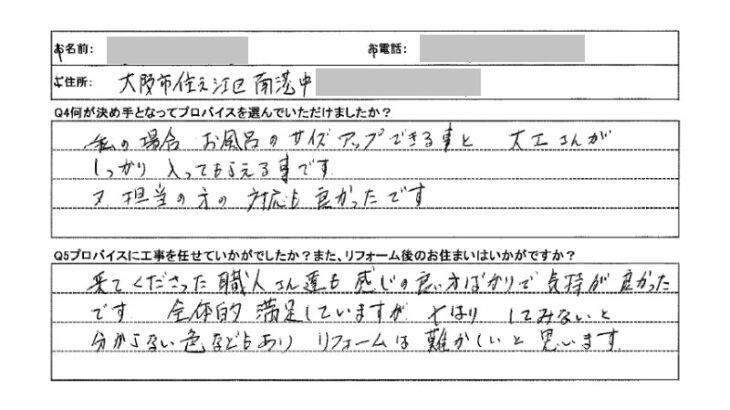 お名前: お電話:
ご住所: 大阪市住之江区南港中
Q4何が決め手となってプロバイスを選んでいただけましたか？
私の場合 お風呂のサイズアップできる事と 大工さんが
しっかり入ってもらえる事です
又担当の方の対応も良かったです
Q5プロバイスに工事を任せていかがでしたか？また、リフォーム後のお住まいはいかがですか？
来てくださった職人さん達も感じの良い方ばかりで気持が良かった
です 全体的 満足していますが やはり してみないと
分からない色などもあり リフォームは難かしいと思います